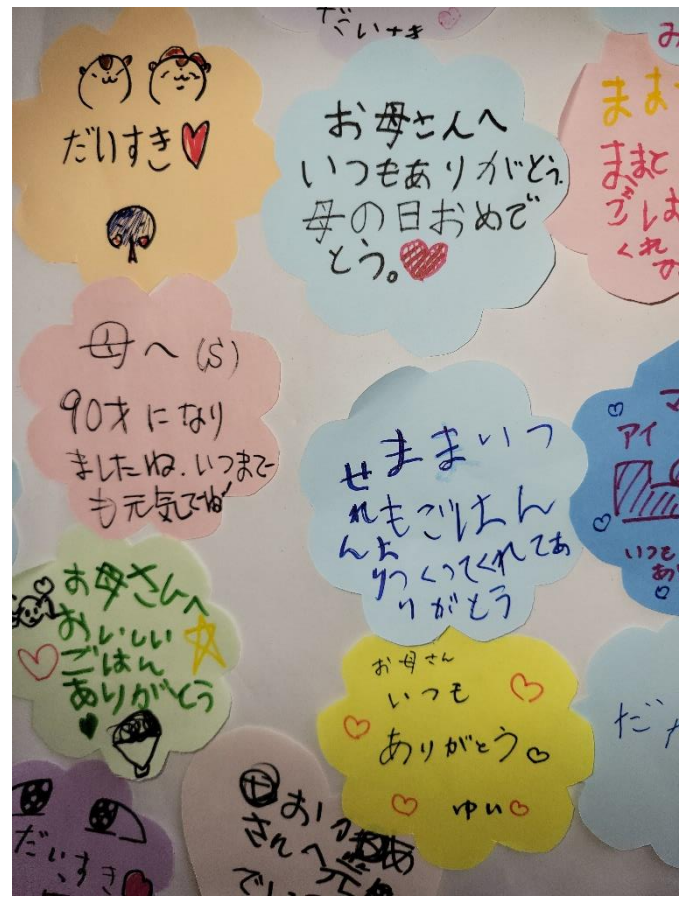 だいすき
だいすき
お母さんへ
いつもありがとう。
母の日おめで
とう。
ままと
くれ
母へ(S)
90才になり
ましたね。いつまで
も元気でね
ままいつ
もごはん
つくってくれてあ
りがとう
せれんより
アイ
いつも
お母さんへ
おいしい
ごはん
ありがとう
お母さん
いつも
ありがとう
ゆい
だいすき
さんへ